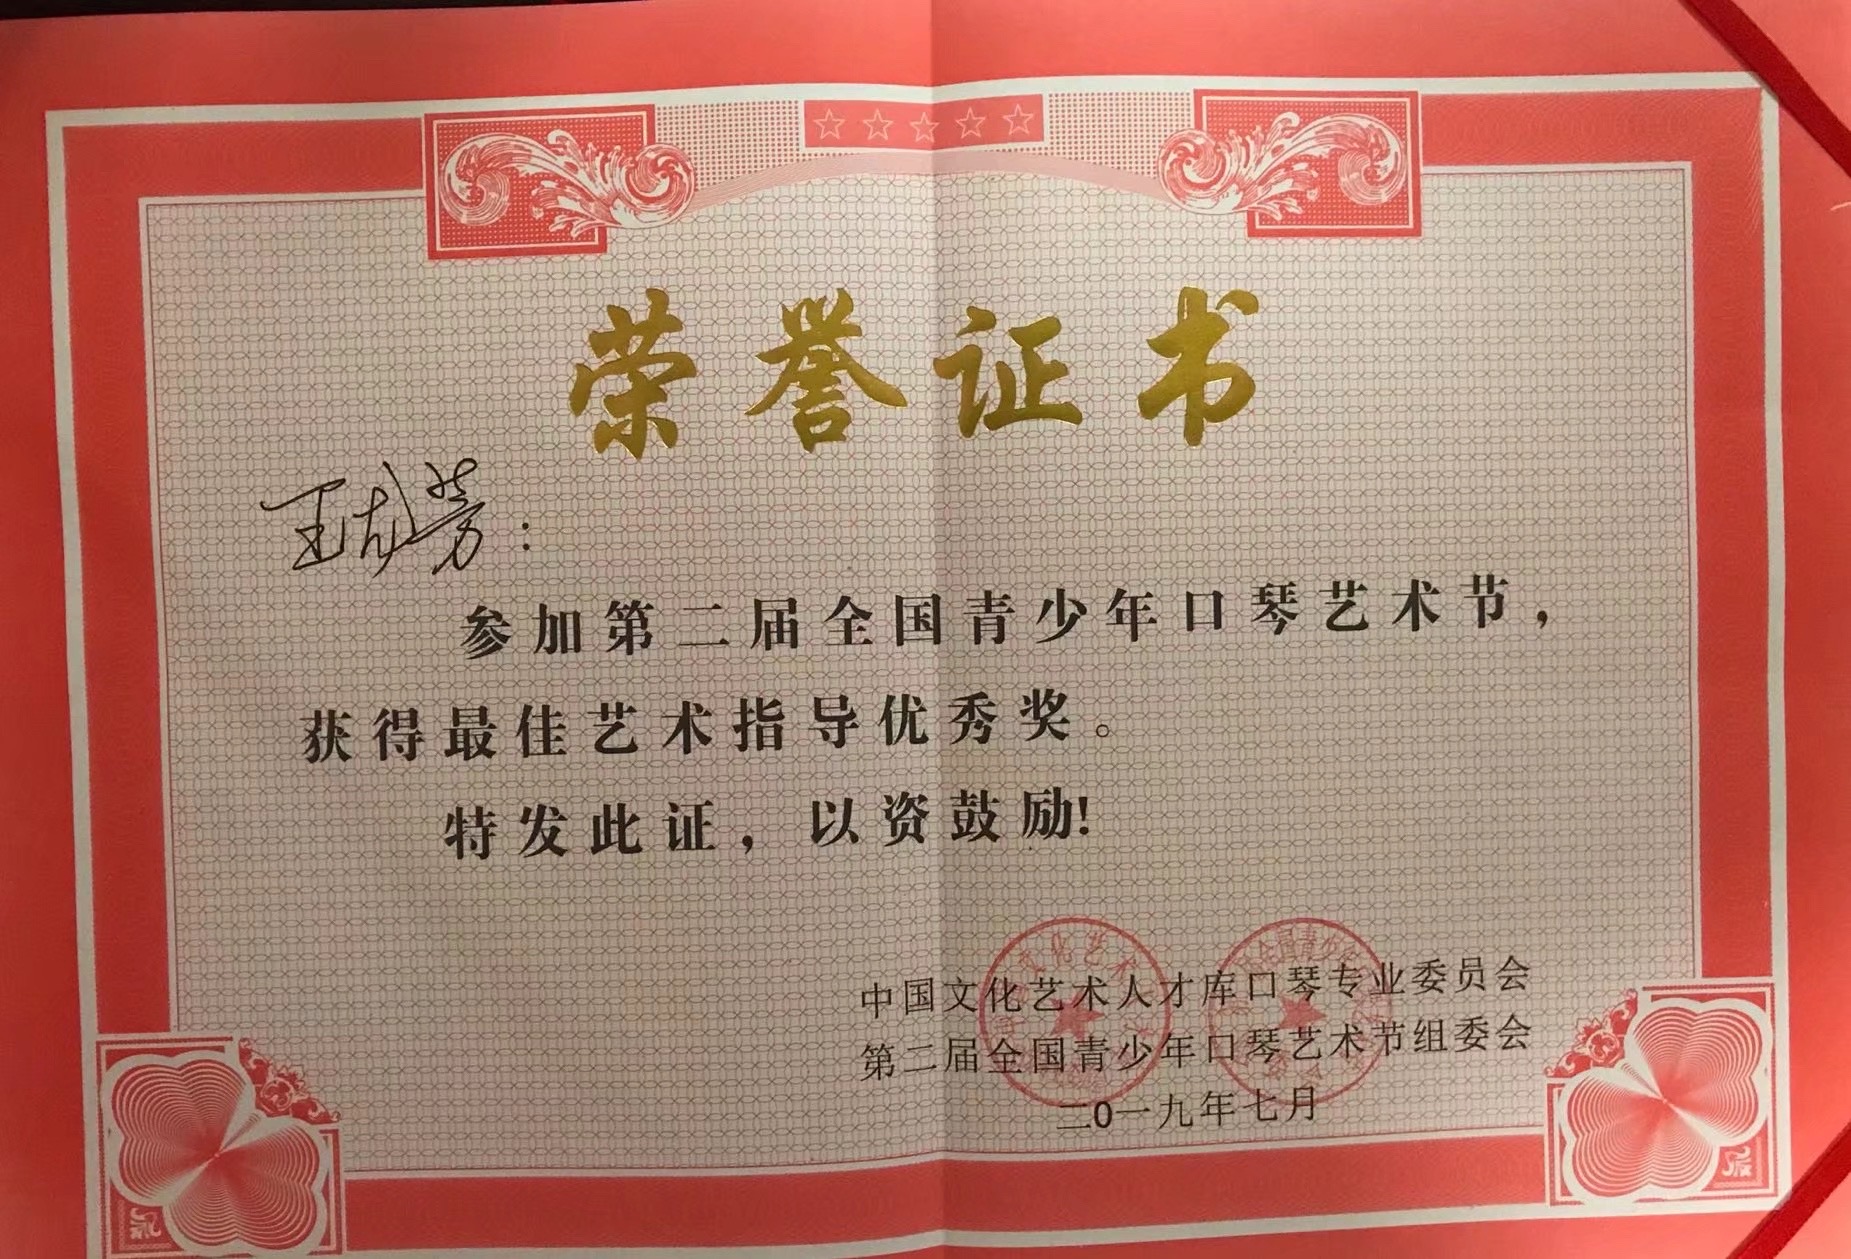 荣誉证书
王龙芳：
参加第二届全国青少年口琴艺术节，
获得最佳艺术指导优秀奖。
特发此证，以资鼓励！
中国文化艺术人才库口琴专业委员会
第二届全国青少年口琴艺术节组委会
二0一九年七月